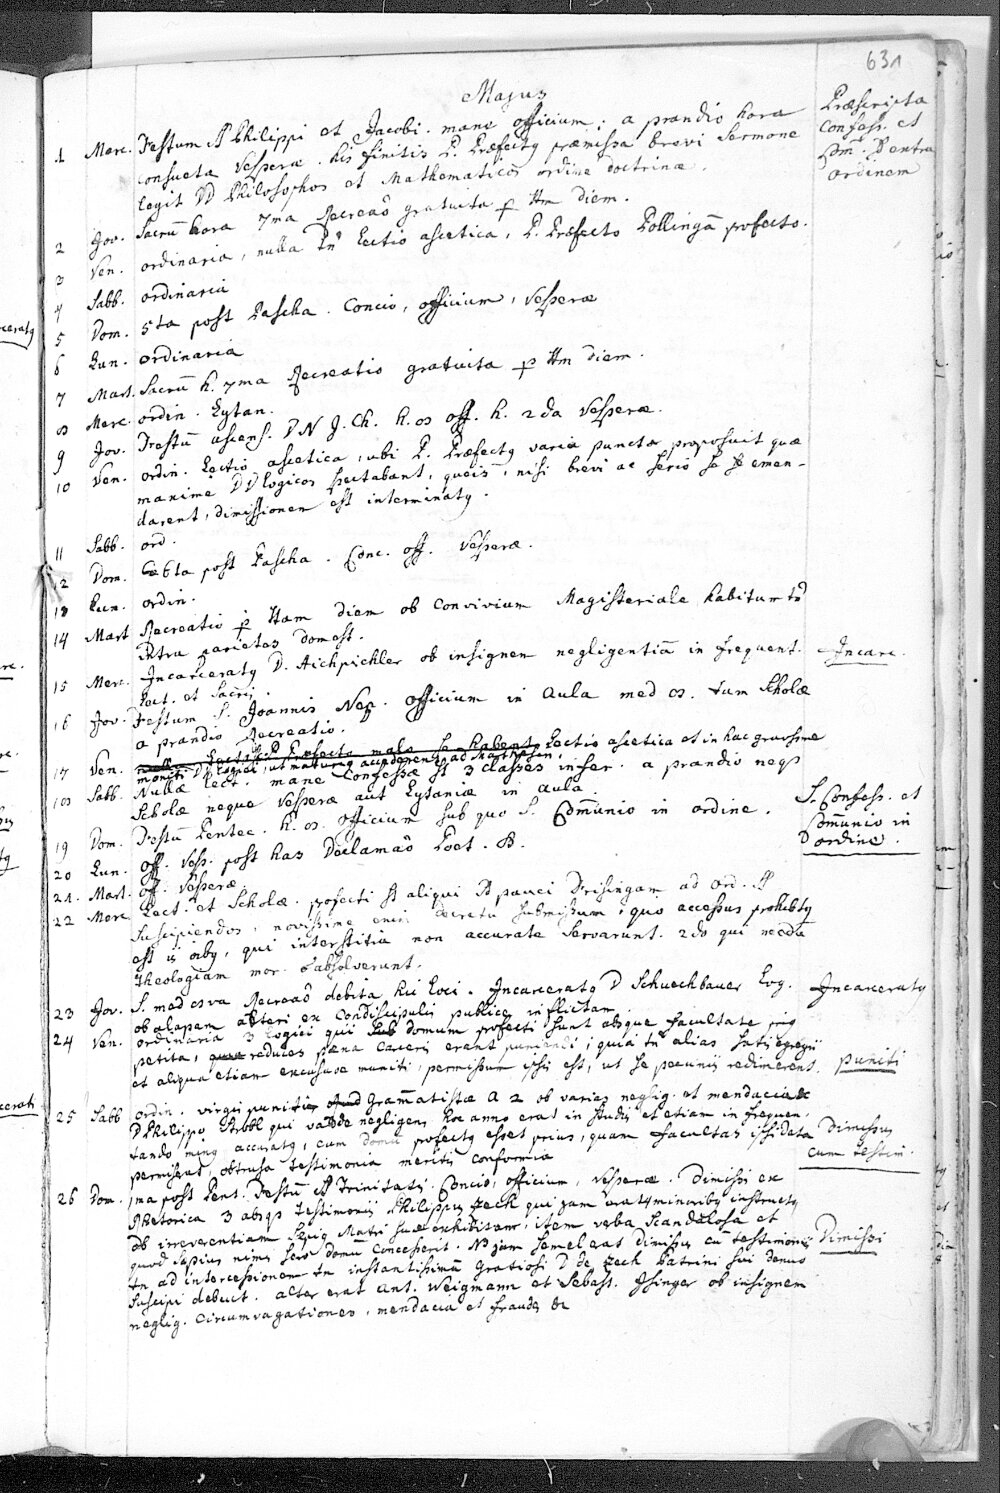 631
Majus
1 Merc. Festum SS Philippi et Jacobi. mane officium; a prandio hora
consueta Vesperae. his finitis P. Praefectq praemissa brevi Sermone
legit DD Philosophos et Mathematicos ordine doctrinae.
Praescripta
Confess. et
Com. D extra
ordinem
2 Jov. Sacru hora 7ma Recreaō gratuita p Htm diem.
3 Ven. ordinaria, nulla tn lectio ascetica, P. Praefecto Pollingā profecto.
4 Sabb. ordinaria
5 Dom. 5ta post Pascha. Concio, officium, Vesperae
6 Lun. ordinaria
7 Mart. Sacrū h. 7ma Recreatio gratuita p Htm diem.
8 Merc. ordin. Lytan.
9 Jov. Festū ascens. DN J. Ch. h. 8 off. h. 2da Vesperae.
10 Ven. ordin. Lectio ascetica, ubi P. Praefectq varia puncta proposuit quae
maxime DD logicos spectabant, queis, nisi brevi ac serio se emen-
darent, dimissionem est interminatq.
11 Sabb. ord.
12 Dom. 6ta post Pascha. Conc. off. Vesperae.
13 Lun. ordin.
14 Mart Recreatio p Htam diem ob convivium Magisteriale habitum
intra parietes domest.
15 Merc. Incarceratq D. Aichpichler ob insignem negligentiā in frequent. Incarc.
lect. et Sacri.
16 Jov. Festum S. Joannis Nep. officium in aula med 8. tum Scholae
a prandio Recreatio.
17 Ven. Lectio ascetica et in hac gravissime
moniti DD logici, ut maturiq accederent ad Mathesin.
18 Sabb. Nullae lect. mane Confessae st 3 classes infer. a prandio neq
Scholae neque Vesperae aut Lytaniae in aula.
19 Dom. Festū Pentec. h. 8. officium sub quo S. Com̄unio in ordine. S. Confess. et
Com̄unio in
ordine.
20 Lun. off. Vesp. post has Declamaō Poet. B.
21. Mart. off. Vesperae
22 Merc Lect. et Scholae. profecti st aliqui pauci Frisingam ad ord. SS
Suscipiendos, novissime enim decretū submissum, quo accessus prohibtq
est iis oibq, qui interstitia non accurate servarunt. 2do qui necdu
Theologiam mor. absolverunt.
23 Jov. S. med 8va Recreaō debita hui loci. Incarceratq D Schuechbauer Log. Incarceratq
ob alapam alteri ex Condiscipulis publice inflictam.
24 Ven. ordinaria 3 Logici qui domum profecti sunt absque facultate priq
petita, reduces poena carceris erant puniendi; quia tn alias satis egregii
et aliqua etiam excusaoe muniti, permissum ipsis est, ut se pecuniis redimerent. puniti
25 Sabb ordin. virgis puniti Gram̄atistae A 2 ob varias neglig. et mendacia &
D Philippq Strobl qui valde negligens hoc anno erat in studiis et etiam in frequen-
tando minq accuratq, cum domū profectq esset priusquam facultas ipsi data Dimissus
permiserit, obtrusa testimonia meritis conformia cum testim.
26 Dom. 1ma post Pent. Festū SS Trinitatis. Concio, officium, Vesperae. Dimissi ex
Rhetorica 3 absq testimoniis Philippus Zech qui jam erat minoribq instructq
ob irreverentiam Matri suae exhibitam; item verba scandalosa et
quod saepius nimis sero domū concesserit. NB jam semel erat dimissus cū testimoniis Dimissi
tn ad intercessionem tn instantissimā Gratiosi D de Zech Patrini sui denuo
suscipi debuit. alter erat Ant. Weigmann et Sebast. Isinger ob insignem
neglig. circumvagationes, mendacia et fraudes &c